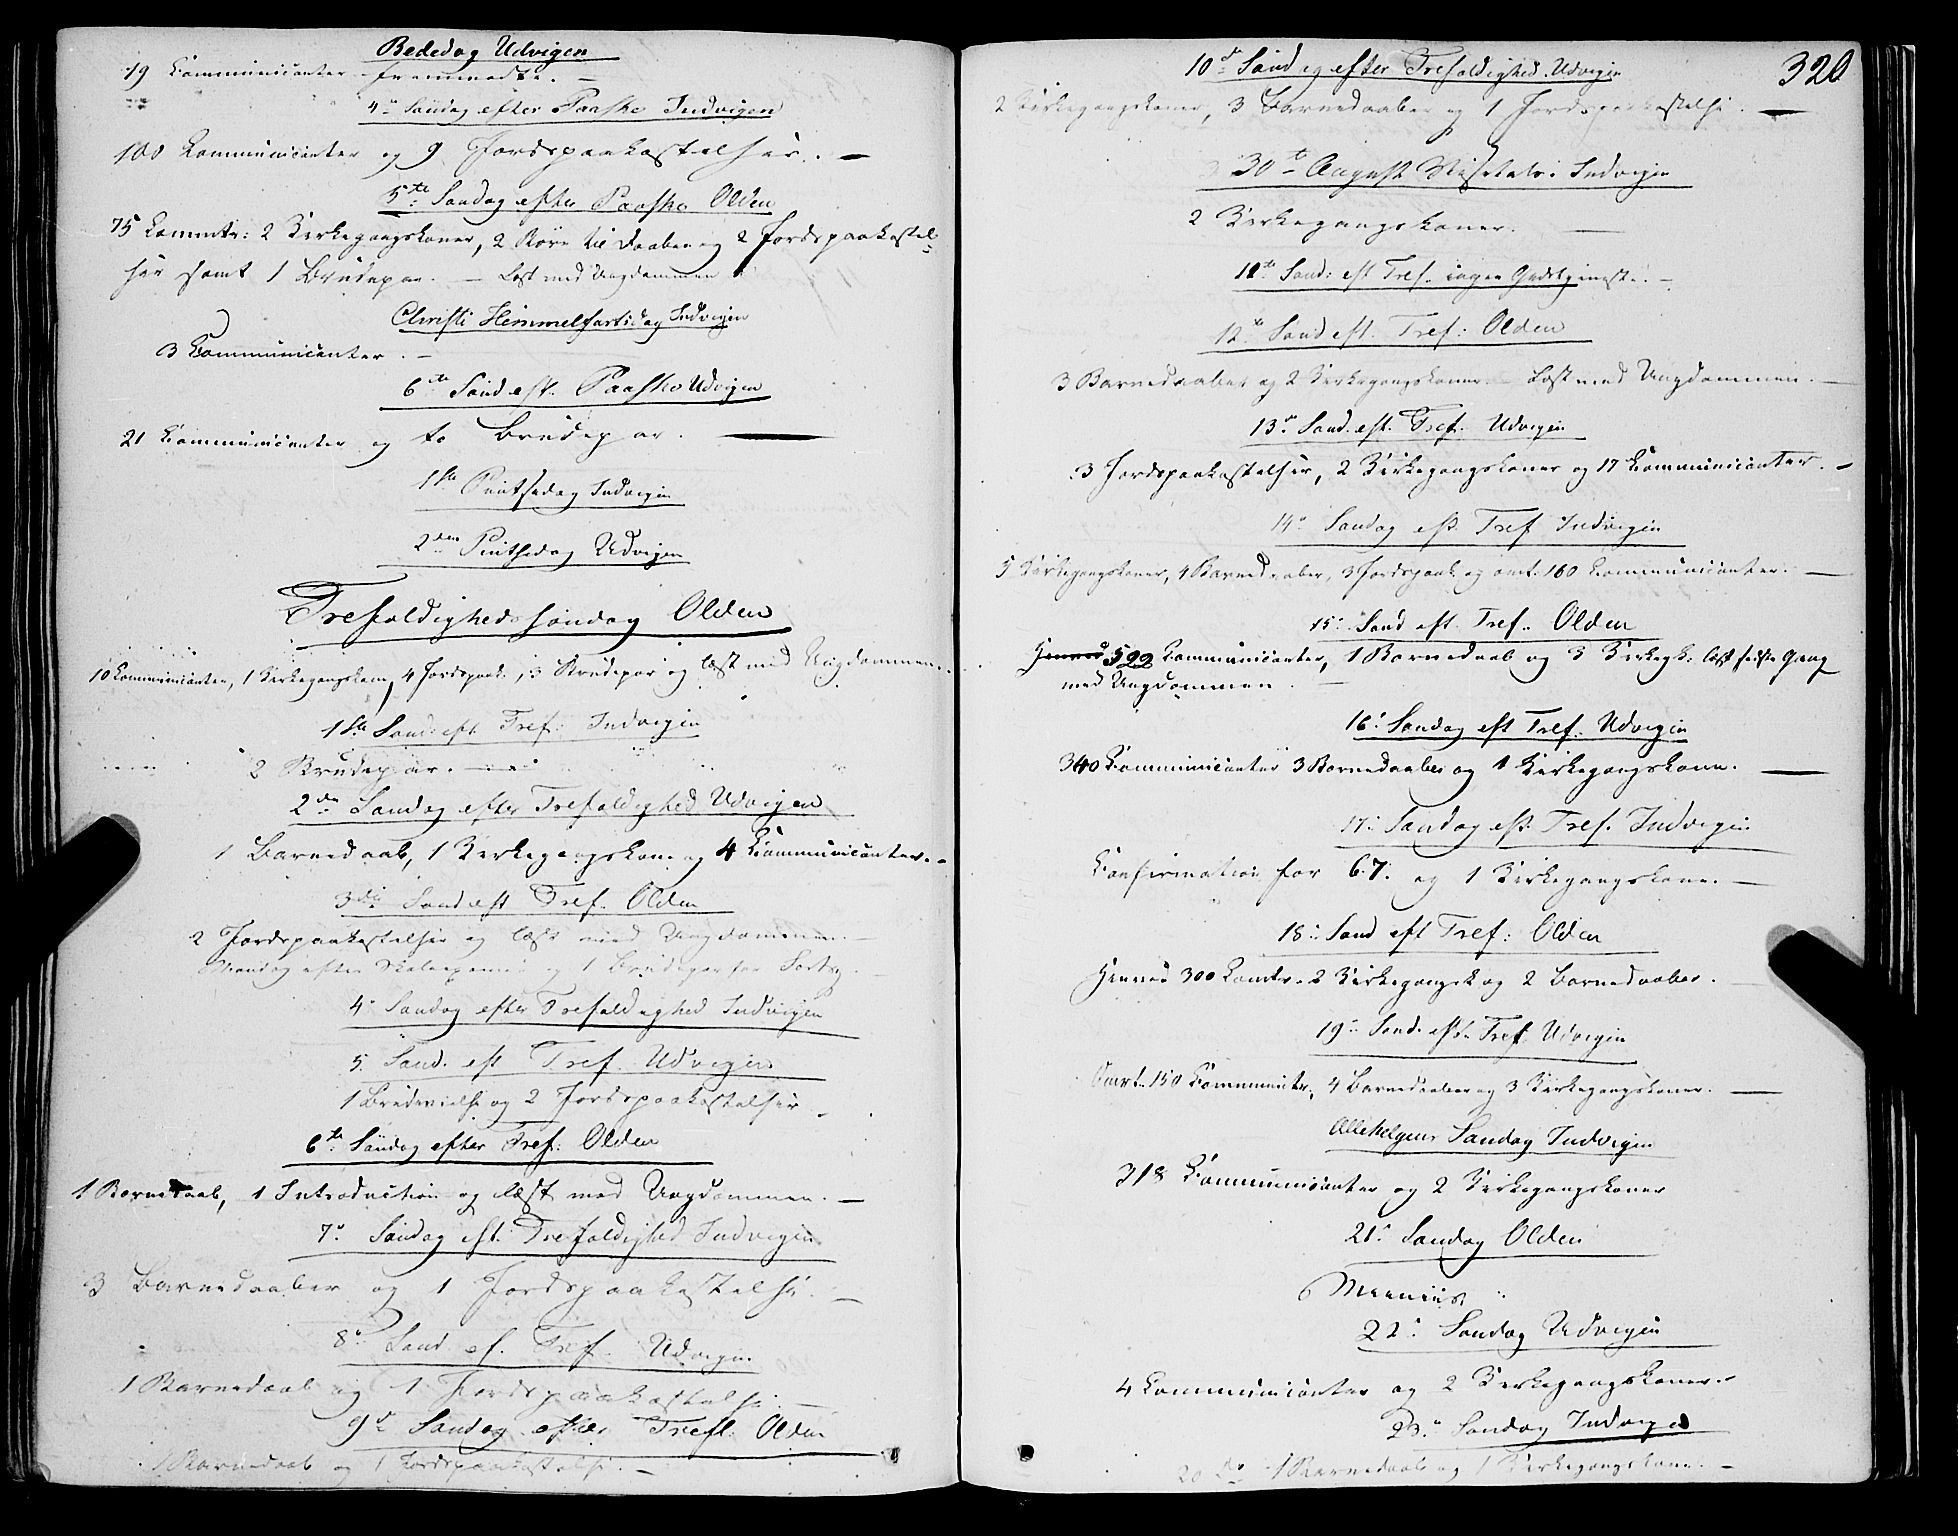 Bededag Udvigen
19 Communicanter fremmødte. –
4de Søndag efter Paaske Indvigen
100 Communicanter og 9 Jordspaakastelser. –
5te Søndag efter Paaske Olden
75 Commtr: 2 Kirkegangskoner, 2 Børn til Daaben og 2 Jordspaakastel-
ser samt 1 Brudepar. – Læst med Ungdommen
Christi Himmelfartsdag Indvigen
3 Communicanter. –
6te Sønd eft. Paaske Udvigen
21 Communicanter og to Brudepar. –
1ste Pintsedag Indvigen
2den Pintsedag Udvigen
Trefoldighedssøndag Olden
10 Communicanter, 1 Kirkegangskone, 4 Jordspaak., 3 Brudepar og læst med Ungdommen.
1ste Sønd: eft Tref: Indvigen
2 Brudepar. –
2den Søndag efter Trefoldighed Udvigen
1 Barnedaab, 1 Kirkegangskone og 4 Communicanter. –
3die Sønd eft Tref. Olden
2 Jordspaakastelser og læst med Ungdommen.
Mandag efter og 1 Brudepar
4 Søndag efter Trefoldighed Indvigen
5 Sønd. eft Tref. Udvigen
1 Brudevielse og 2 Jordspaakastelser.
6te Søndag efter Tref: Olden
1 Barnedaab, 1 Introduction og læst med Ungdommen. –
7de Søndag eft. Trefoldighed Indvigen
3 Barnedaaber og 1 Jordspaakastelse. –
8de Sønd. ef. Tref. Udvigen
1 Barnedaab og 1 Jordspaakastelse. –
9de Søndag efter Tref: Olden
1 Barnedaab og 1 Jordspaakastelse. –
320
10de Søndag efter Trefoldighed Udvigen
2 Kirkegangskoner, 3 Barnedaaber og 1 Jordspaakastelse. –
30te August Indvigen
2 Kirkegangskoner. –
11te Sønd: eft Tref. ingen Gudstjeneste. –
12te Sønd eft. Tref: Olden
3 Barnedaaber og 2 Kirkegangskoner – Læst med Ungdommen. –
13de Sønd. eft. Tref. Udvigen
3 Jordspaakastelser, 2 Kirkegangskoner og 17 Communicanter. –
14de Søndag eft. Tref Indvigen
5 Kirkegangskoner, 4 Barnedaaber, 3 Jordspaak. og omt. 160 Communicanter. –
15. Sønd eft. Tref. Olden
522 Communicanter, 1 Barnedaab og 3 Kirkegk: læst sidste Gang
med Ungdommen. –
16de Søndag eft Tref. Udvigen
340 Communicanter 3 Barnedaaber og 1 Kirkegangskone. –
17: Søndag eft. Tref. Indvigen
Confirmation for 67. og 1 Kirkegangskone. –
18: Sønd eft Tref: Olden
Henved 300 Comtr. 2 Kirkegangsk og 2 Barnedaaber. –
19de Sønd. eft. Tref. Udvigen
Omt. 150 Communictr, 4 Barnedaaber og 3 Kirkegangskoner. –
Allehelgens Søndag Indvigen
318 Communicanter og 2 Kirkegangskoner
21de Søndag Olden
22de Søndag Udvigen
4 Communicanter og 2 Kirkegangskoner. –
23de Søndag Indvigen
1 Barnedaab og 1 Kirkegangskone. –